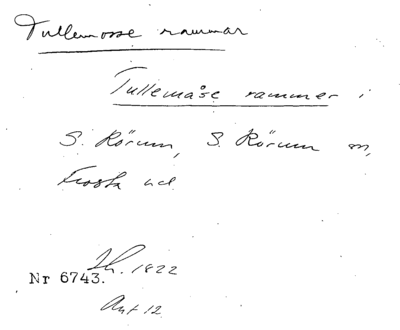 Tullemosse rammar
Tullemåse rammer i
S. Rörum, S. Rörum sn,
Frosta hd.
Lh. 1822
Nr 6743.
Ant 12